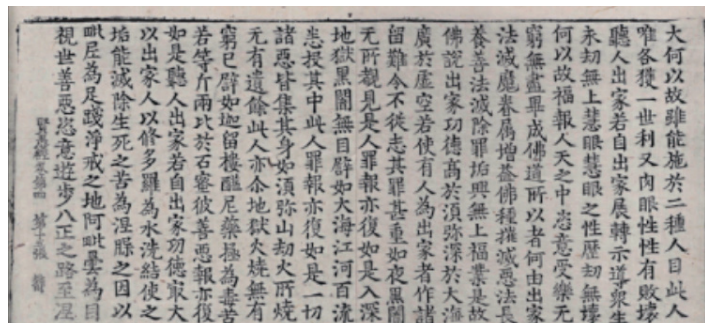 大何以故雖能施於二種人目此人
唯各獲一世利又肉眼性性有敗壞
聽人出家若自出家展轉示導衆生
永劫無上慧眼慧眼之性歷劫無壞
何以故福報人天之中恣意受樂無
窮無盡畢成佛道所以者何由出家
法滅魔眷屬增益佛種摧滅惡法長
養善法滅除罪垢興無上福業是故
佛說出家功德高於須弥深於大海
廣於虛空若使有人為出家者作諸
留難令不從志其罪甚重如夜黑闇
无所覩見是人罪報亦復如是入深
地獄黑闇無目辟如大海江河百流
悉投其中此人罪報亦復如是一切
諸惡皆集其身如須弥山劫火所燒
无有遺餘此人亦尒地獄火燒無有
窮已辟如迦留樓醯尼藥極為毒苦
若等斤兩比於石蜜彼善惡報亦復
如是聽人出家若自出家功德㝡大
以出家人以修多羅為水洗結使之
垢能滅除生死之苦為涅槃之因以
毗尼為足踐淨戒之地阿毗曇為目
視世善惡恣意遊步八正之路至涅
賢愚經卷第四 第
張